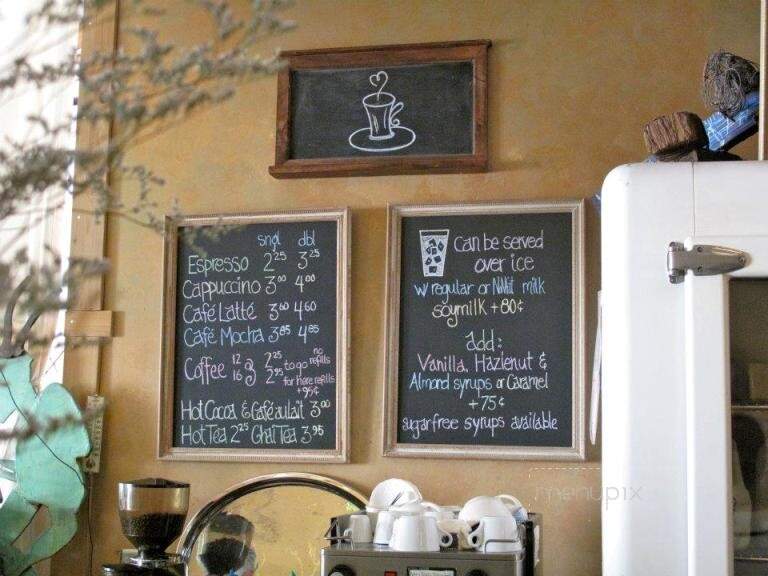 sngl dbl
Espresso 2²⁵ 3²⁵
Cappuccino 3⁰⁰ 4⁰⁰
Café Latté 3⁶⁰ 4⁶⁰
Café Mocha 3⁸⁵ 4⁸⁵
Coffee 12 oz 2²⁵ to go no refills
16 2⁹⁵ for here refills
+95¢
Hot Cocoa & Café au lait 3⁰⁰
Hot Tea 2²⁵ Chai Tea 3.⁹⁵
Can be served
over ice
w/ regular or Nonfat milk
soymilk + 80¢
add:
Vanilla, Hazlenut &
Almond syrups or Caramel
+75¢
sugarfree syrups available
menupix